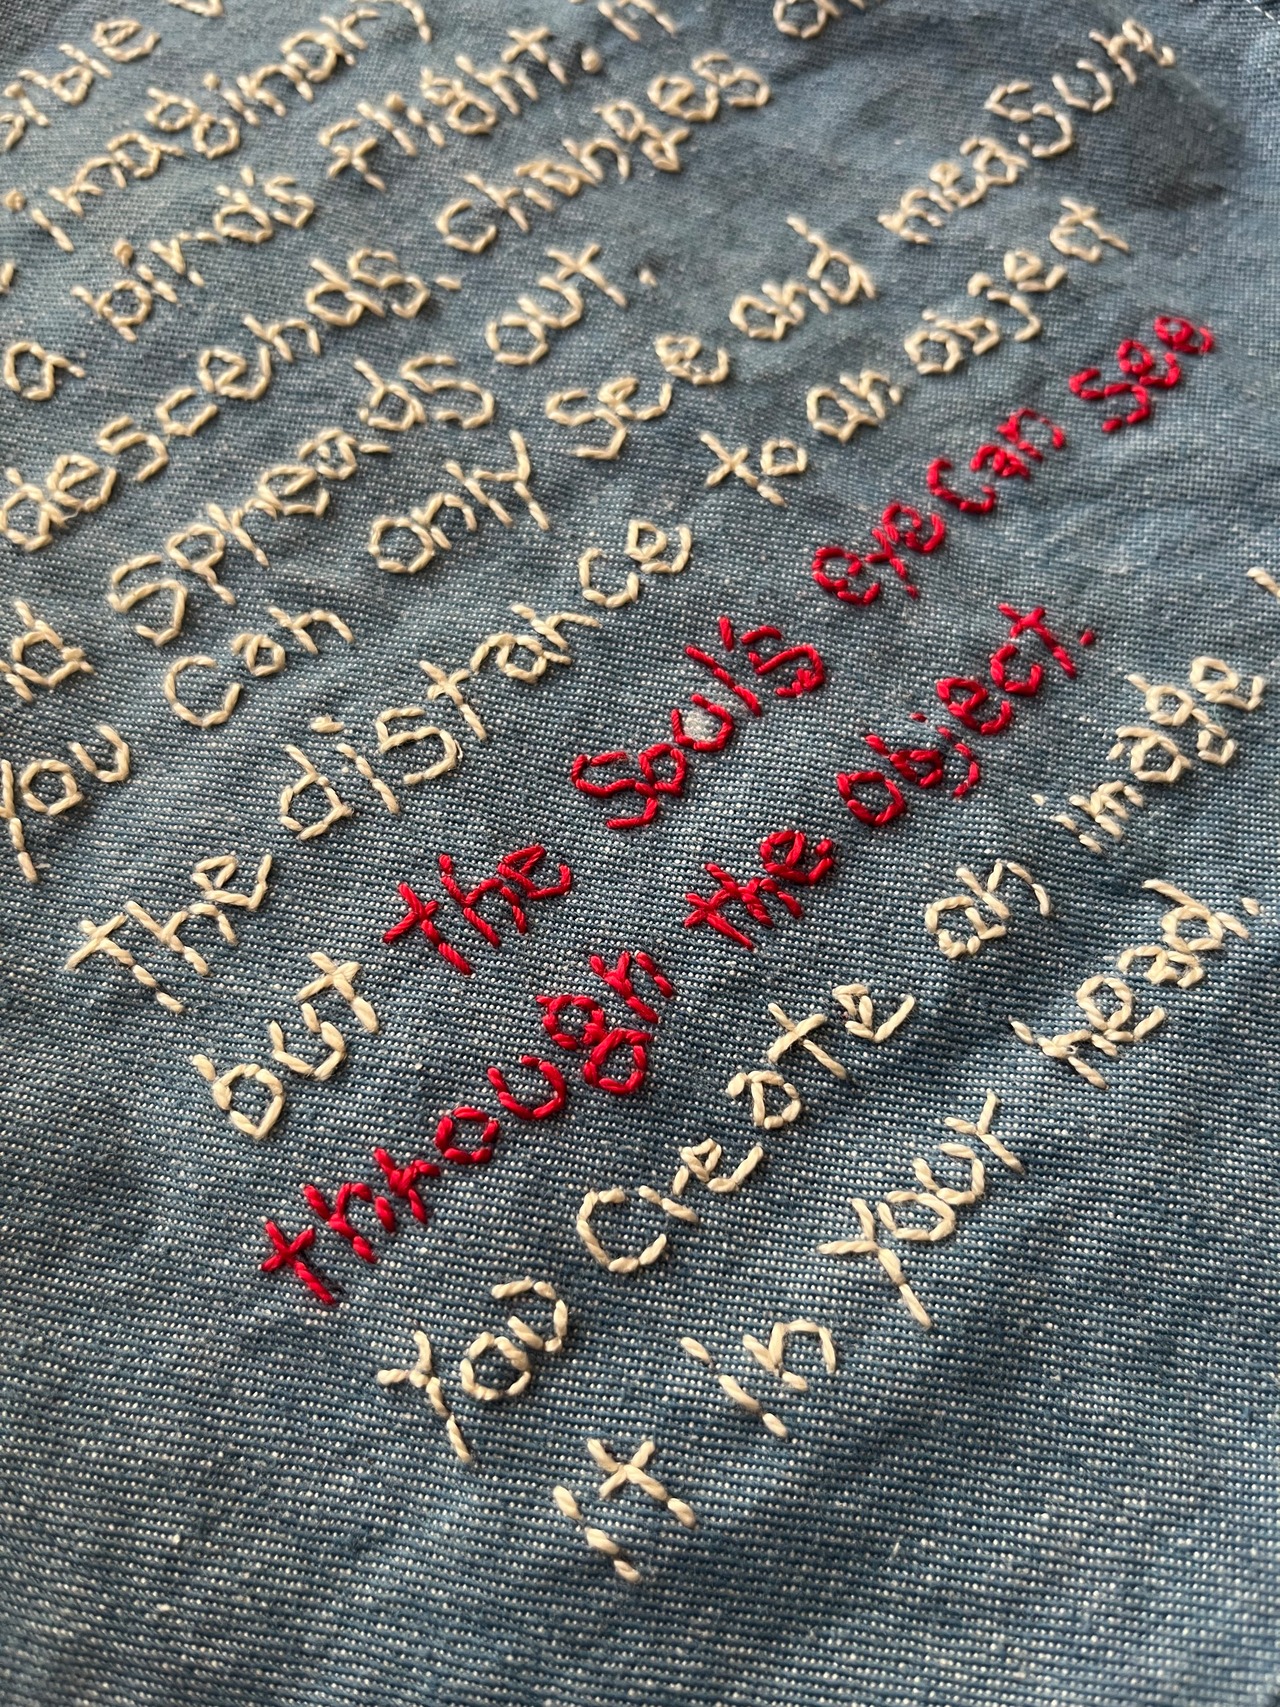 imaginary
a bird's flight.
descends. changes
spreads out.
You can only see and measur
The distance to an object
but the soul's eye can see
through the object.
You create an image
it in your head.